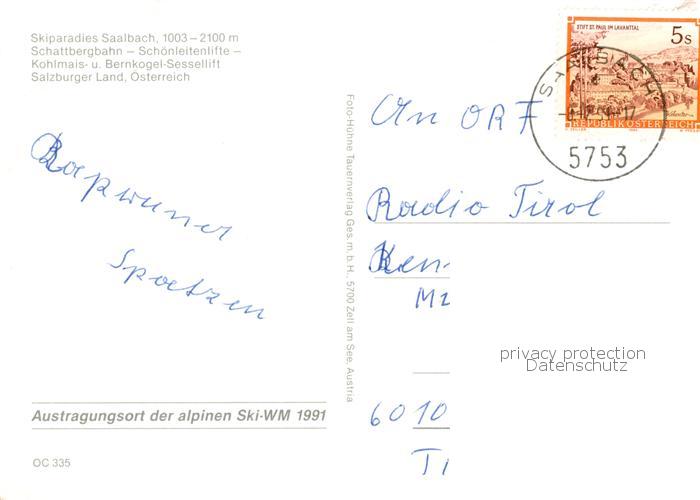 Skiparadies Saalbach, 1003 – 2100 m
Schattbergbahn – Schönleitenlifte –
Kohlmais- u. Bernkogel-Sessellift
Salzburger Land, Österreich
STIFT ST. PAUL IM LAVANTTAL
5s
REPUBLIK ÖSTERREICH
SAALBACH
5753
An ORF
Radio Tirol
6010
Spatzen
Foto-Hühne Tauernverlag Ges. m. b. H., 5700 Zell am See, Austria
privacy protection
Datenschutz
Austragungsort der alpinen Ski-WM 1991
OC 335